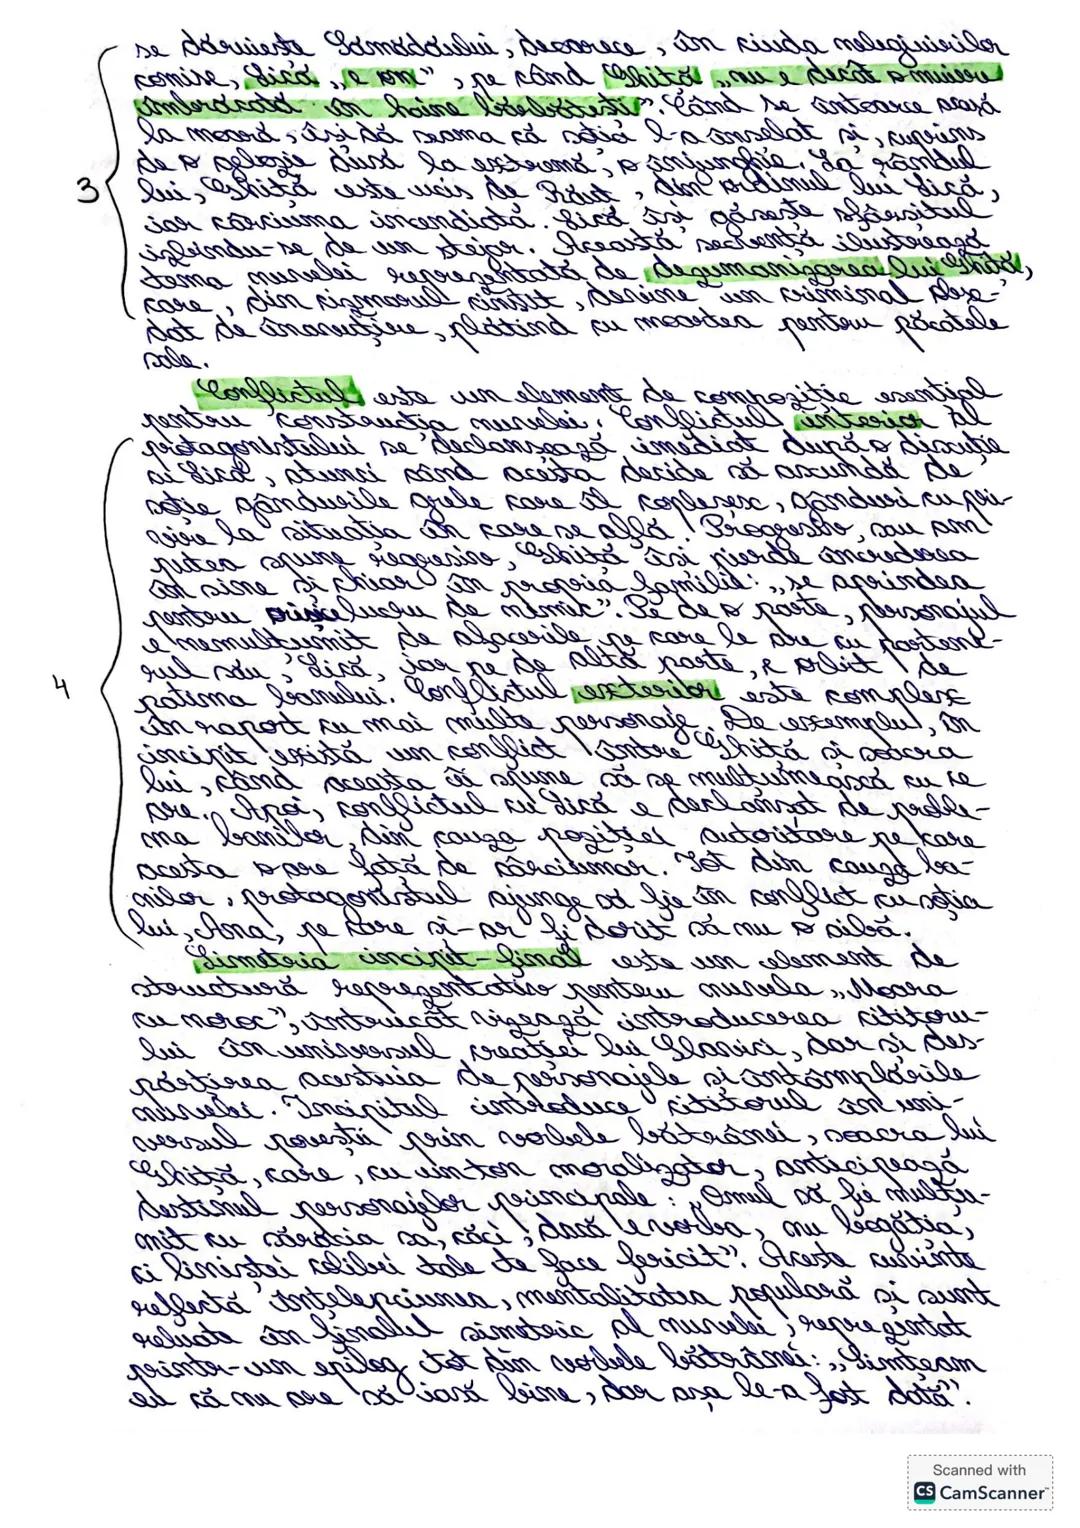 se dăruiește Sămădăului, deoarece, în ciuda nelegiuirilor
comise, Lică „e om”, pe când Ghiță „nu e decât o muiere
îmbrăcată în haine bărbătești”. Când se întoarce seara
la moară, își dă seama că soția l-a înșelat și, cuprins
de o gelozie dusă la extremă, o înjunghie. La rândul
3 lui, Ghiță este ucis de Răuț, din ordinul lui Lică,
iar cârciuma incendiată. Lică își găsește sfârșitul
izbindu-se de un stejar. Această secvență ilustrează
tema nuvelei reprezentată de dezumanizarea lui Ghiță,
care, din cizmarul cinstit, devine un criminal obse-
dat de înavuțire, plătind cu moartea pentru păcatele
sale.
Conflictul este un element de compoziție esențial
pentru construcția nuvelei. Conflictul interior al
protagonistului se declanșează imediat după o discuție
cu Lică, atunci când acesta decide să ascundă de
soție gândurile grele care îl copleșesc, gânduri cu pri-
vire la situația în care se află. Progresiv, sau am
putea spune regresiv, Ghiță își pierde încrederea
în sine și chiar în propria familie: „se aprindea
pentru orice lucru de nimic”. Pe de o parte, personajul
e nemulțumit de afacerile pe care le are cu partene-
rul său, Lică, iar pe de altă parte, e orbit de
4 patima banului. Conflictul exterior este complex
în raport cu mai multe personaje. De exemplu, în
incipit există un conflict între Ghiță și soacra
lui, când aceasta îi spune să se mulțumească cu ce
are. Apoi, conflictul cu Lică e declanșat de proble-
ma banilor, din cauza poziției autoritare pe care
acesta o are față de cârciumar. Tot din cauza ba-
nilor, protagonistul ajunge să fie în conflict cu soția
lui, Ana, pe care și-ar fi dorit să nu o aibă.
Simetria incipit-final este un element de
structură reprezentativ pentru nuvela „Moara
cu noroc”, întrucât vizează introducerea cititoru-
lui în universul creației lui Slavici, dar și des-
părțirea acestuia de personajele și întâmplările
nuvelei. Incipitul introduce cititorul în uni-
versul poveștii prin vorbele bătrânei, soacra lui
Ghiță, care, cu un ton moralizator, anticipează
destinul personajelor principale: „Omul să fie mulțu-
mit cu sărăcia sa, căci, dacă e vorba, nu bogăția,
ci liniștei colibei tale te face fericit”. Aceste cuvinte
reflectă înțelepciunea, mentalitatea populară și sunt
reluate în finalul simetric al nuvelei, reprezentat
printr-un epilog tot din vorbele bătrânei: „Simțeam
eu că nu are să iasă bine, dar așa le-a fost dată”.
Scanned with
CS CamScanner